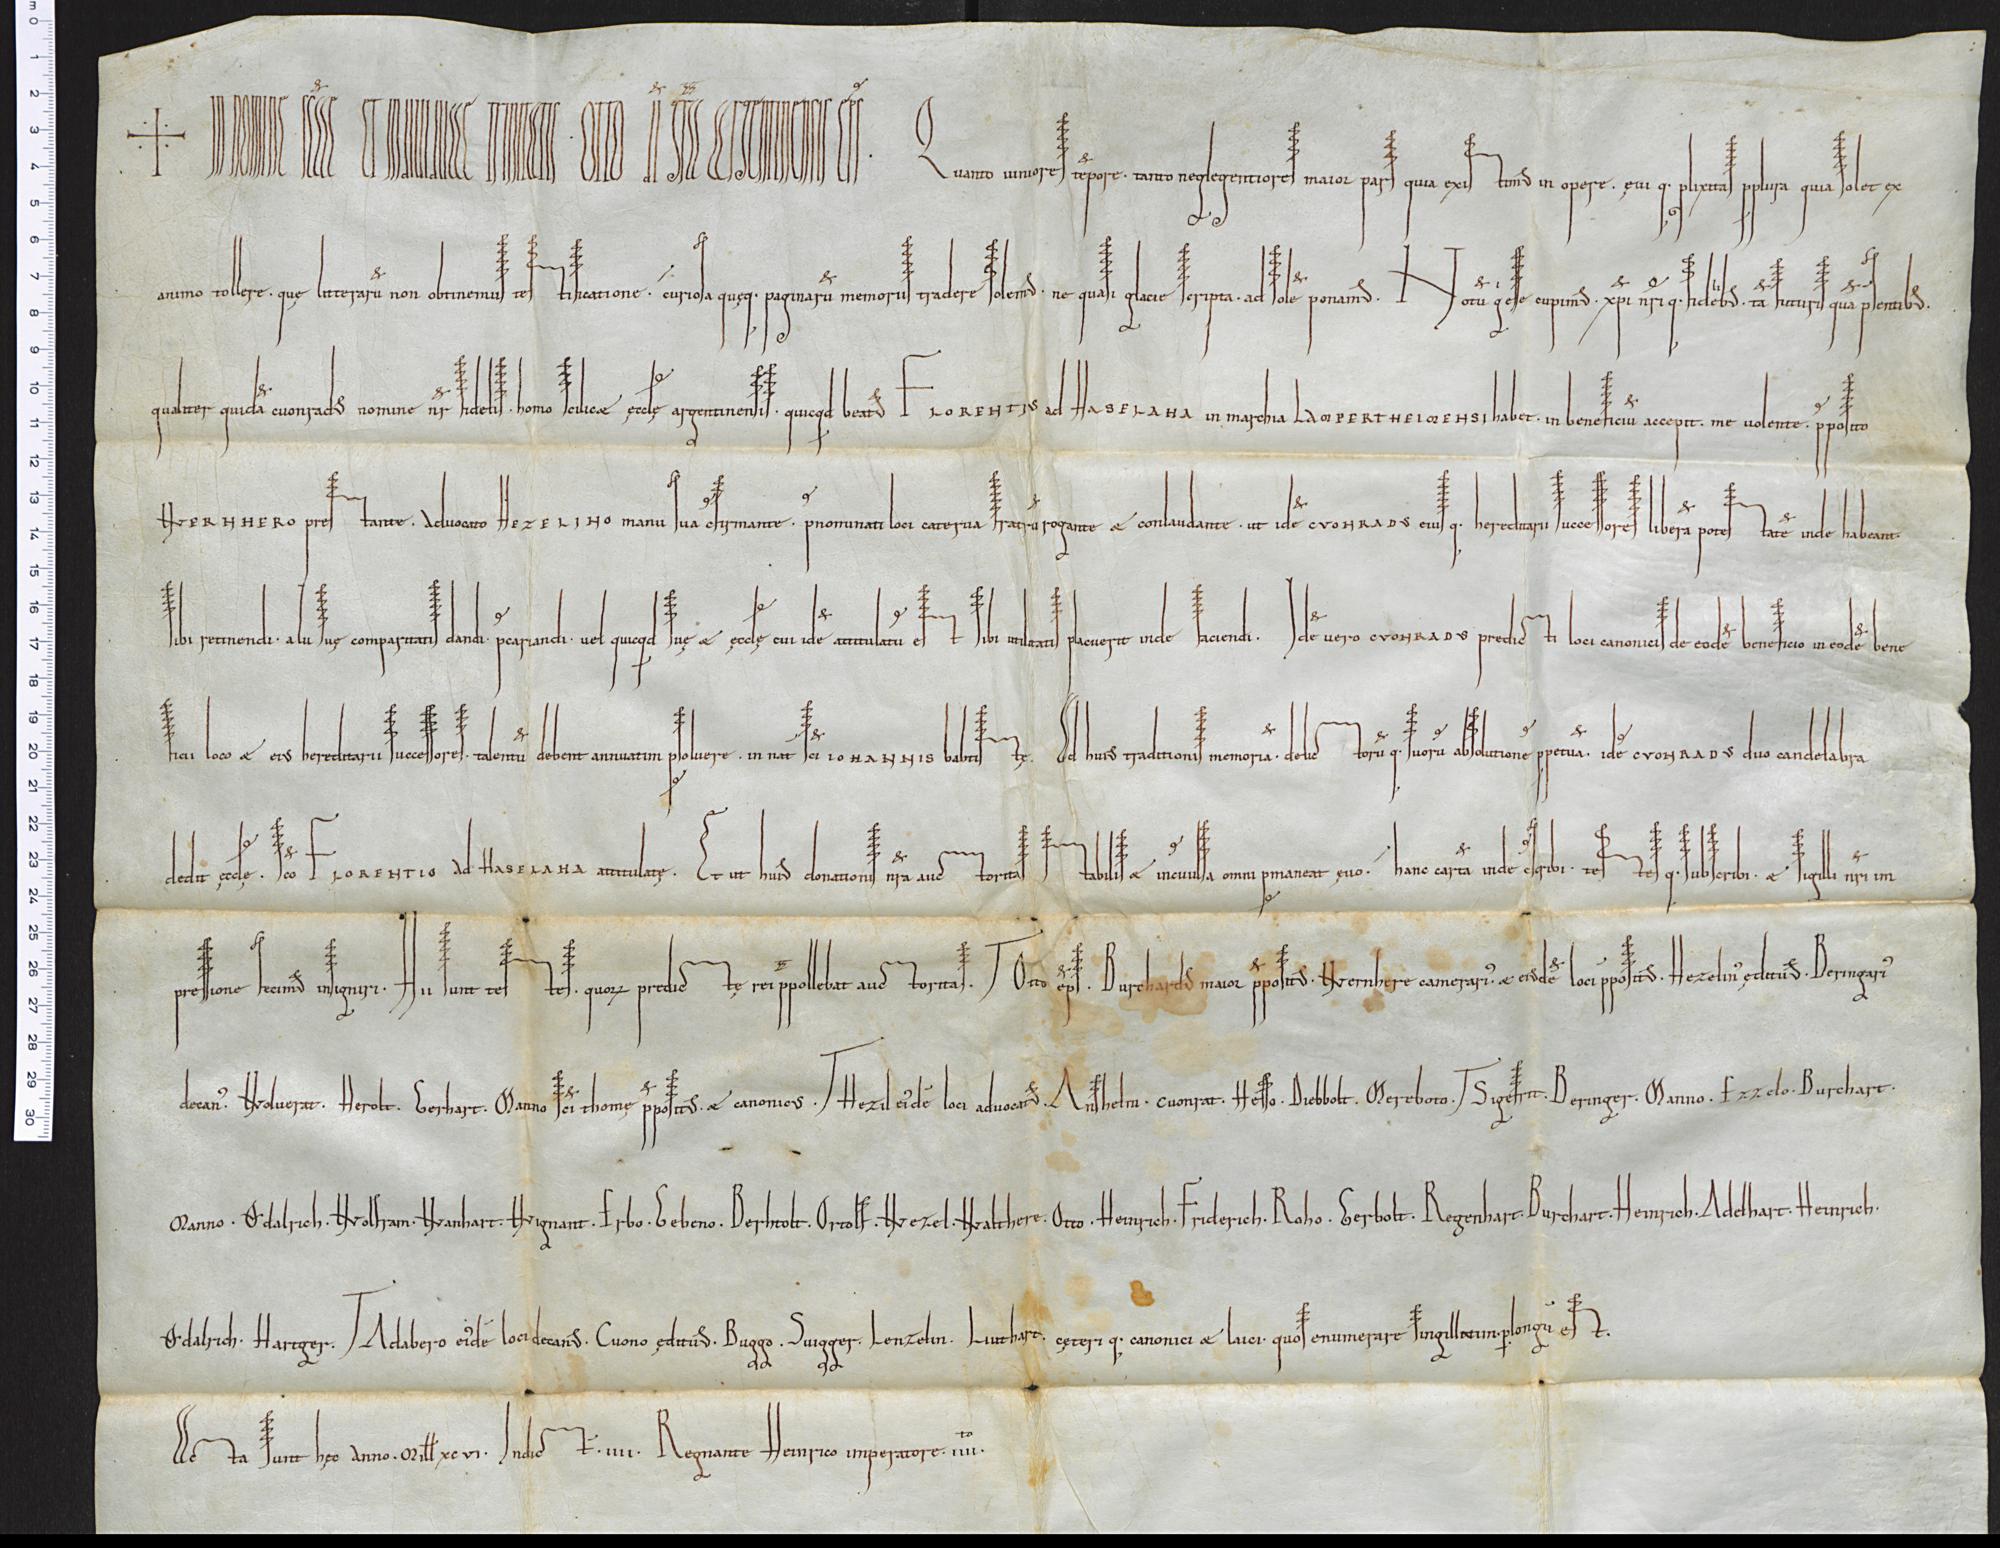 IN NOMINE SCĘ ET INDIVIDUĘ TRINITATIS · OTTO DI GRA ARGENTINENSIS EPS. Quanto iuniores tēpore · tanto neglegentiores maior pars quia existim' in opere · ęui q; plixitas pplura quia solet ex
animo tollere · quę litterarū non obtinemus testificatione · curiosa quęq; paginarū memoriis tradere solem' · ne quasi glacie scripta · ad solē ponam'. Notū g esse cupim' · xpi nri q; fidelib' · tā futuris quā psentib'.
qualiter quidā cuonrad' nomine nr fidelis · homo scilicet ęcclę argentinensis · quicqd beat' FLORENTIUS ad HASELAHA in marchia LAMPERTHEIMENSI habet · in beneficiū accepit · me volente · pposito
WERNHERO prestante · Advocato HEZELINO manu sua cfirmante · pnominati loci caterva fratrū rogante & conlaudante · ut idē CVONRADVS eius q; hereditarii successores liberā potestatē inde habeant
sibi retinendi · alii suę comparitatis dandi · pcariandi · vel quicqd suę & ęcclę cui idē attitulatū est sibi utilitatis placuerit inde faciendi. Idē vero CVONRADVS predicti loci canonicis de eodē beneficio in eodē bene
ficii loco & eius hereditarii successores · talentū debent annuatim psolvere · in nat sci IOHANNIS babtistę. Ad hui' traditionis memoriā · delictorū q; suorū absolutionē ppetuā · idē CVONRADVS duo candelabra
dedit ęcclę · sco FLORENTIO Ad HASELAHA attitulatę. Et ut hui' donationis nrā auctoritas stabilis & inconvulsa omni pmaneat ęvo · hanc cartā inde cscribi · testes q; subscribi · & sigilli nri im
pressione fecim' insigniri. Hii sunt testes · quorz predictę rei ppollebat auctoritas. Otto eps · Burchard' maior pposit' · Wernhere camerari' · & ei'dē loci pposit' · Hezelin' ęditu' · Beringari'
decan' · Wolverat · Herolt · Gerhart · Manno sci thomę pposit' & canonic' · Hezil ei'dē loci advocat' · Anshelm · Cuonrat · Hesso · Diebbolt · Mereboto · Sigefrit · Beringer · Manno · Ezzelo · Burchart ·
Manno · Odalrich · Wolfram · Wanhart · Wignant · Erbo · Gebeno · Berhtolt · Ortolf · Wezel · Walthere · Otto · Heinrich · Friderich · Roho · Gerbolt · Regenhart · Burchart · Heinrich · Adelhart · Heinrich ·
Odalrich · Hartger · Adabero ei'dē loci decan' · Cuono ęditu' · Buggo · Suigger · Lenzelin · Liuthart · ceteri q; canonici & laici · quos enumerare singillatim · plongū est.
Acta sunt hęc anno · Mill xcvi · Indict · iiii · Regnante Heinrico imperatore · iiii to ·